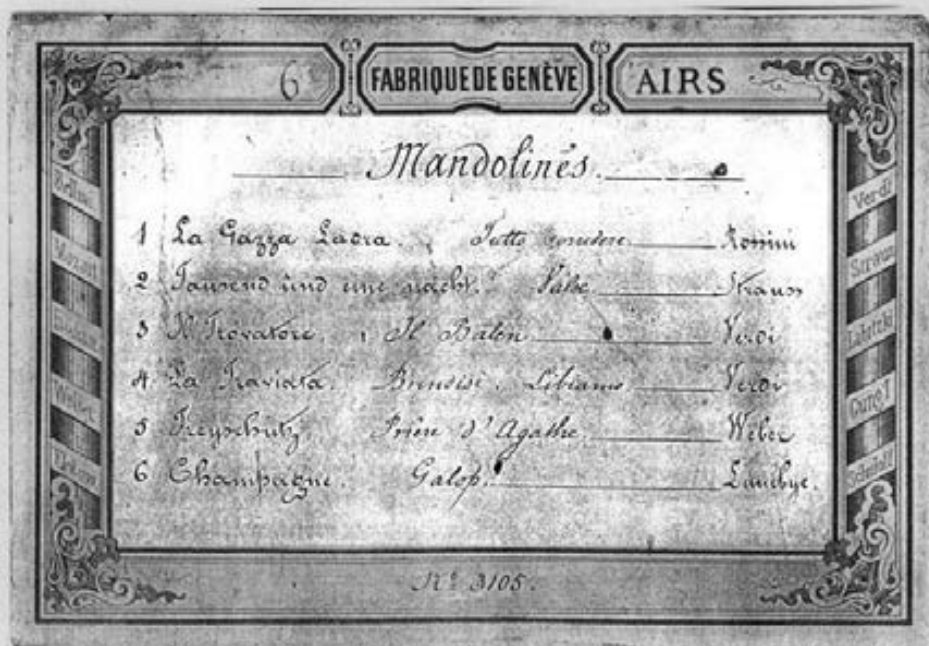 6 FABRIQUE DE GENÈVE AIRS
Mandolines.
1 La Gazza Ladra. Tutto Rossini
2 Tausend und eine nacht. Valse Strauss
3 Il Trovatore. Il Balen Verdi
4. La Traviata. Brindisi. Libiamo Verdi
5 Freyschutz. Prière d'Agathe. Weber
6 Champagne. Galop. Lumbye.
Mozart
Weber
Verdi
Strauss
Labitzki
Nº 3105.